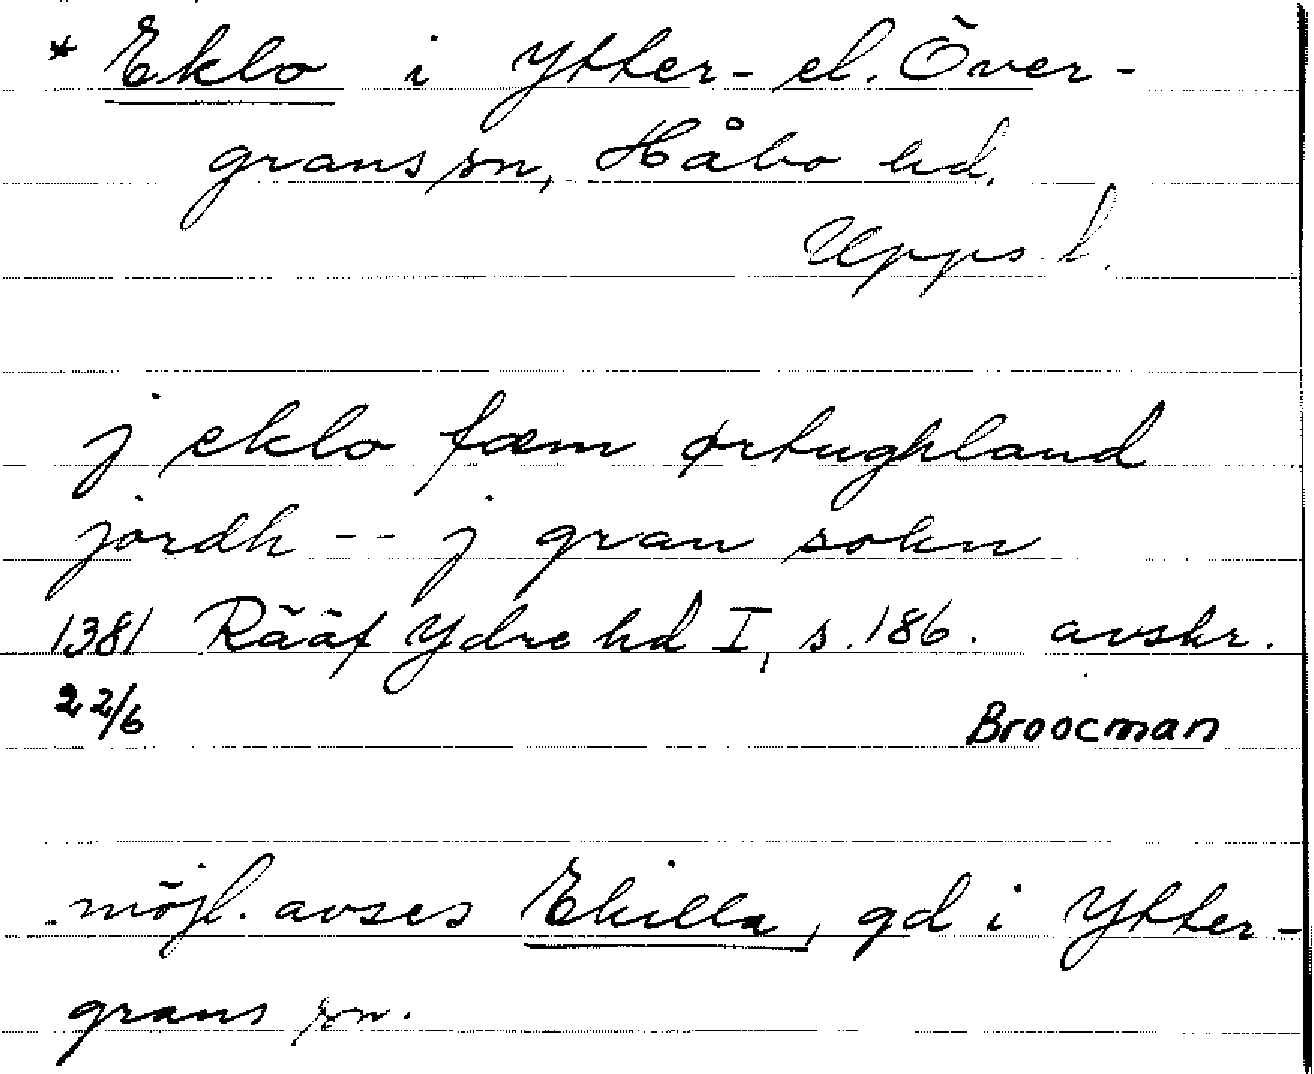 * Eklo i Ytter- el. Över-
grans sn, Håbo hd.
Upps l.
j eklo fæm ørtughland
jordh -- j gran sokn
1381 Rääf Ydre hd I, s. 186. avskr.
22/6 Broocman
möjl. avses Ekilla, gd i Ytter-
grans sn.